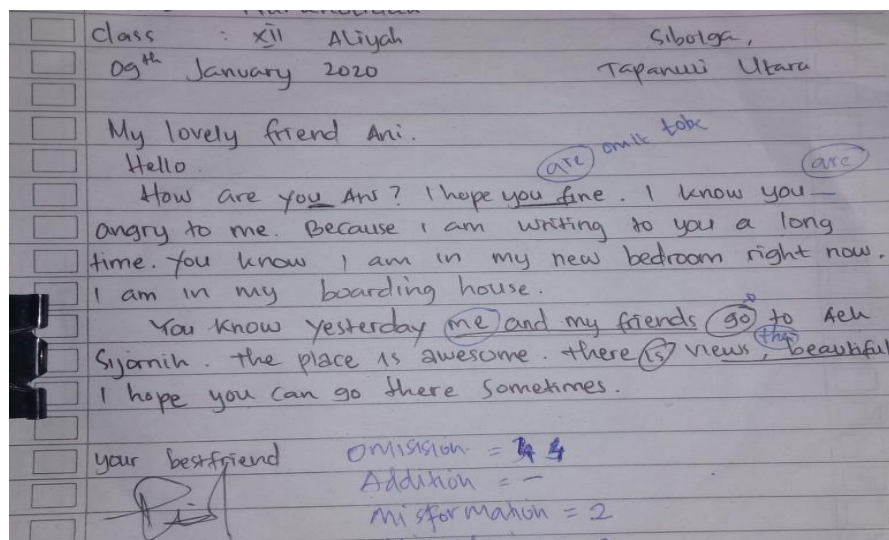 Class : XII Aliyah Sibolga,
09th January 2020 Tapanuli Utara
My lovely friend Ani.
are omit tobe are
Hello.
How are you Ani? I hope you fine. I know you
angry to me. Because I am writing to you a long
time. You know I am in my new bedroom right now.
I am in my boarding house.
You know yesterday me and my friends go to Aek
Sijornih. the place is awesome. there is views, the beautiful
I hope you can go there sometimes.
your bestfriend Omission = 4
Addition = -
Misformation = 2